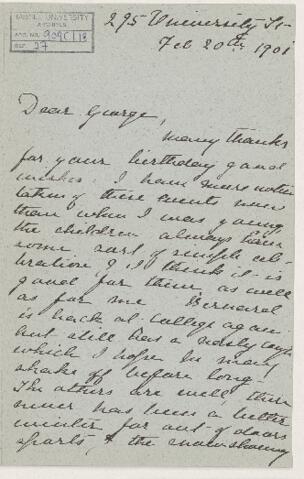 McGILL UNIVERSITY
ARCHIVES
ACC. NO. 909C/18
REF. 27
295 University St-
Feb 20th 1901
Dear George,
Many thanks
for your birthday good
wishes. I have more notice
taken of these events now
than when I was young
the children always have
some sort of simple cele-
bration & I think it is
good for them as well
as for me Bernard
is back at College again
but still has a nasty cough
which I hope he may
shake off before long-
The others are well, there
never has been a better
winter for out of doors
sports, & the snowshoeing